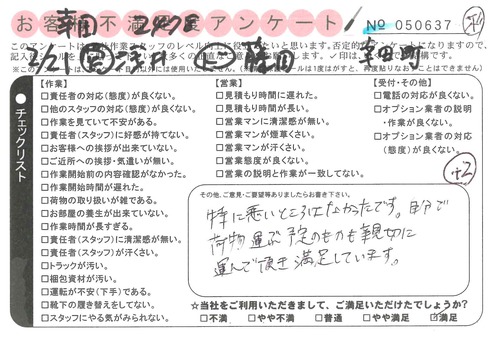 お客様不満足度アンケート
№ 050637
このアンケートは
✓印は、
【作業】
□責任者の対応(態度)が良くない。
□他のスタッフの対応(態度)が良くない。
□作業を見ていて不安がある。
□責任者(スタッフ)に好感が持てない。
□お客様への挨拶が出来ていない。
□ご近所への挨拶・気遣いが無い。
□作業開始前の内容確認がなかった。
□作業開始時間が遅れた。
□荷物の取り扱いが雑である。
□お部屋の養生が出来ていない。
□作業時間が長すぎる。
□責任者(スタッフ)に清潔感が無い。
□責任者(スタッフ)が汗くさい。
□トラックが汚い。
□梱包資材が汚い。
□運転が不安(下手)である。
□靴下の履き替えをしてない。
□スタッフにやる気がみられない。
【営業】
□見積もり時間に遅れた。
□見積もり時間が長い。
□営業マンに清潔感が無い。
□営業マンが煙草くさい。
□営業マンが汗くさい。
□営業態度が良くない。
□営業の説明と作業が一致してない。
【受付・その他】
□電話の対応が良くない。
□オプション業者の説明
・作業が良くない。
□オプション業者の対応
(態度)が良くない。
チェックリスト
+2
その他、ご意見・ご要望等ありましたらお書き下さい。
特に悪いところはなかったです。自分で
荷物運ぶ予定のものも親切に
運んで頂き満足しています。
☆当社をご利用いただきまして、ご満足いただけたでしょうか?
□不満 □やや不満 □普通 □やや満足 ☑満足